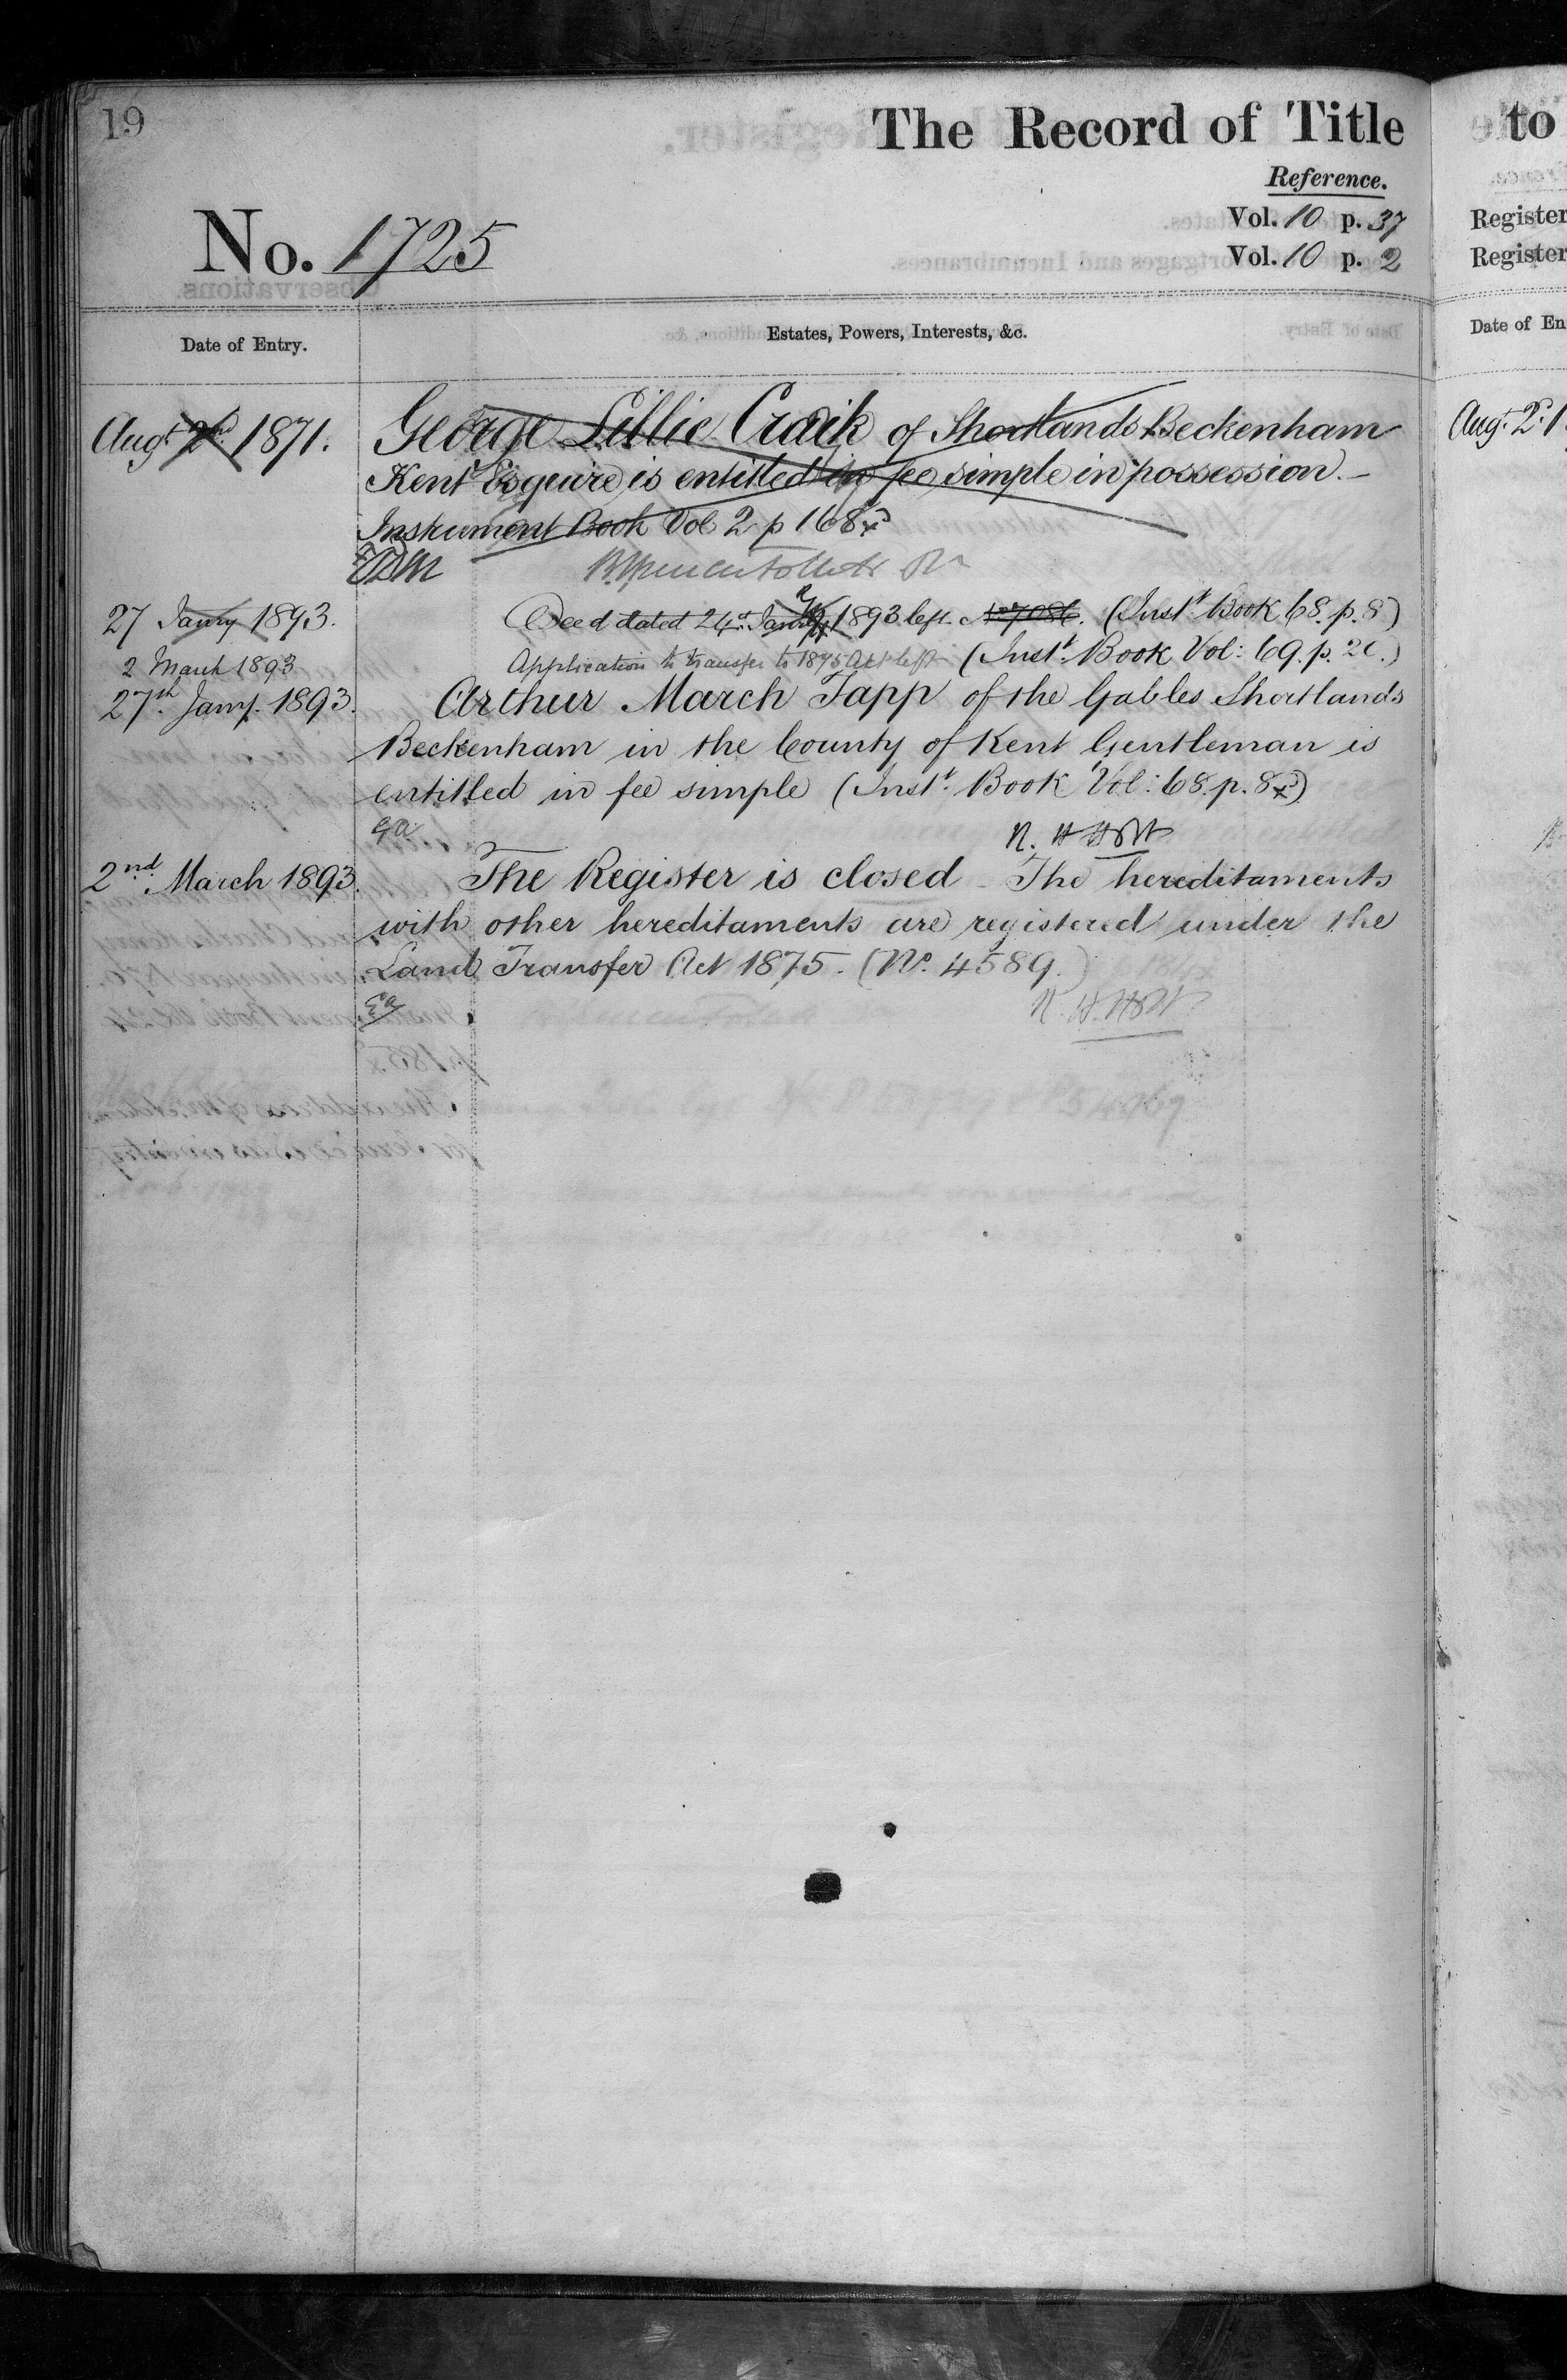 19
The Record of Title
Reference.
No. 1725
Vol. 10 p. 37
Vol. 10 p. 2
Date of Entry.
Estates, Powers, Interests, &c.
Augt. 2nd. 1871.
George Lillie Craik of Shortlands Beckenham
Kent Esquire is entitled in fee simple in possession. —
Instrument Book Vol 2 p 168
27 Janry 1893.
Deed dated 24 1893 left. No 7086. (Inst. Book 68. p. 8)
2 March 1893
Application to transfer to 1875 Act left (Inst. Book Vol: 69. p. 20.)
27th. Jany. 1893.
Arthur March Tapp of the Gables Shortlands
Beckenham in the County of Kent Gentleman is
entitled in fee simple (Inst. Book Vol: 68. p. 8)
R. H. Holt
2nd. March 1893.
The Register is closed – The hereditaments
with other hereditaments are registered under the
Land Transfer Act 1875. (No. 4589.)
R. H. Holt
to
Register
Register
Date of En
Aug. 2. 1